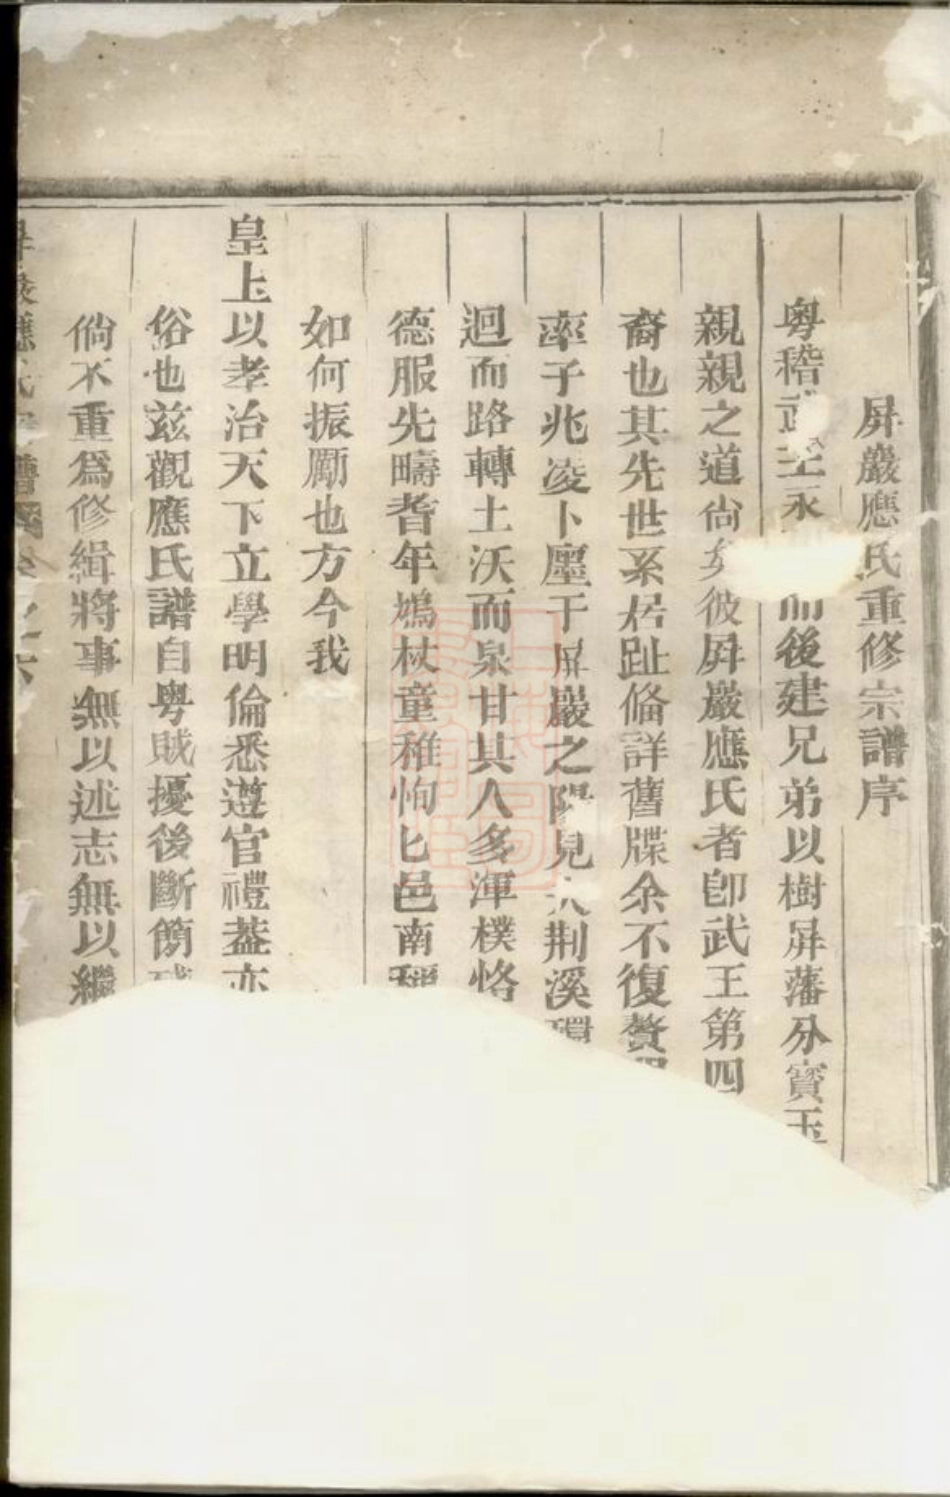 屏巖應氏重修宗譜序
粵稽武王永而後建兄弟以樹屏藩分寶玉
親親之道尙矣彼屏巖應氏者卽武王第四
裔也其先世系居趾備詳舊牒余不復贅
率子兆凌卜廛于屏巖之陽見大荆溪環
迴而路轉土沃而泉甘其人多渾樸恪
德服先疇耆年鳩杖童稚恂匕邑南稱
如何振勵也方今我
皇上以孝治天下立學明倫悉遵官禮葢亦
俗也茲觀應氏譜自粵賊擾後斷簡殘
倘不重爲修緝將事無以述志無以繼
屏巖應氏宗譜